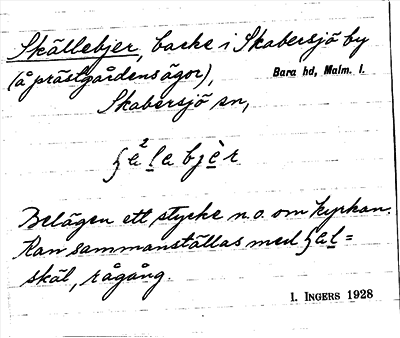 Skällebjer, backe i Skabersjö by
(å prästgårdens ägor), Bara hd, Malm. l.
Skabersjö sn,
Belägen ett stycke n.o. om kyrkan.
Kan sammanställas med
skäl, rågång.
I. INGERS 1928